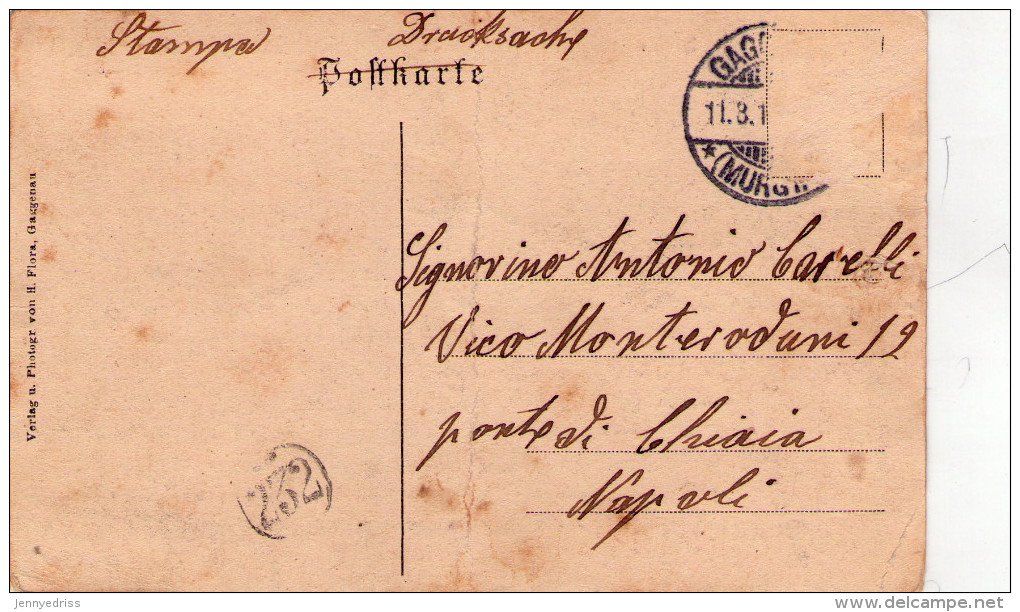 Stampa Drucksache
Postkarte
GAGG
11.8.1
(MURGT
Verlag u. Photogr von H. Flora, Gaggenau
Signorino Antonio Carelli
Vico Monteroduni 12
ponte di Chiaia
Napoli
232
jennyedriss
delcampe.net